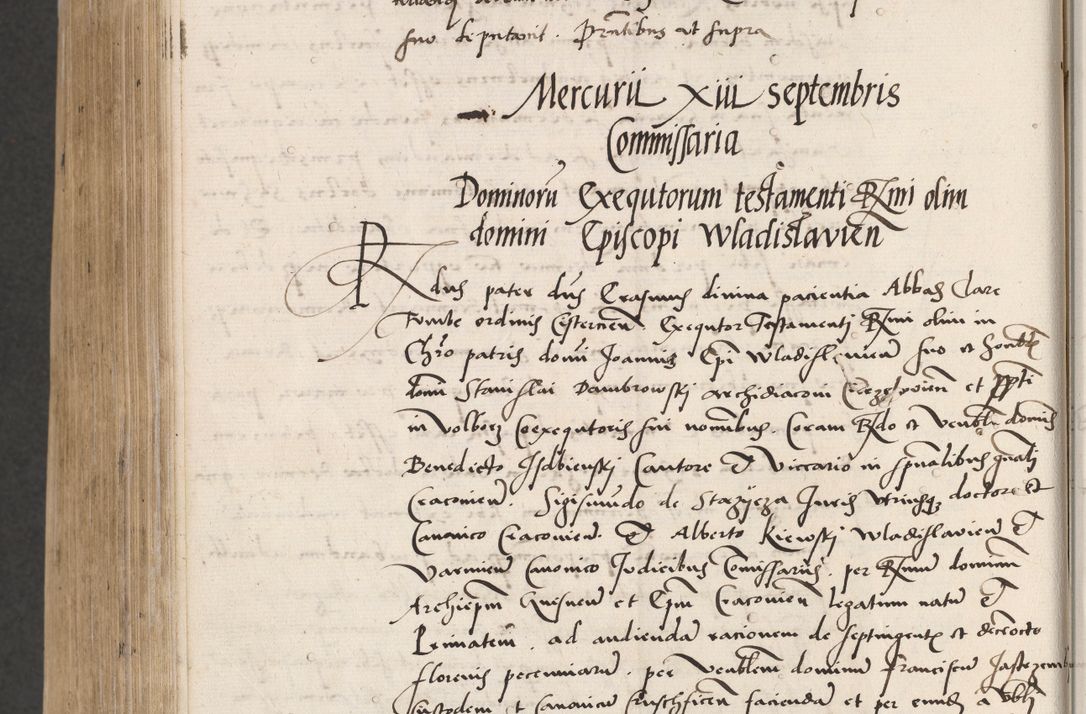 suo deputavit. Pntibus ut supra
Mercurii xiii septembris
Commissaria
Dominorū Exequtorum testamenti Rmi olim
domini Episcopi Wladislavien
Rdus pater dns Erasmus divina paciencia Abbas Clare
Tumbe ordinis Cistercien. Exequtor Testamenti Rmi olim in
Chro patris domi Joannis Epi Wladislavien suo et honbl
domi Stanislai Dambrowskj archidiaconi et ppti
in Volborz Coexequtoris sui nomibus. Coram Rdo et Venbl dominis
Benedicto Isdbienskj Cantore et Viccario in spualibus gnali
Cracovien. Sigismundo de Iuris utriusq doctore et
Canonico Cracovien. et Alberto Kiewskj Wladislavien et
Varmien Canonico Iudicibus Comissariis. per Rmum dominum
Archiepm Gnesnen et Epm Cracovien legatum natum et
Primatem. ad audiendā racionem de septingent et decēocto
florenis pecuniarū. per Venblem dominum Franciscū
Custodem et Canonicū faciendā et per eundē a